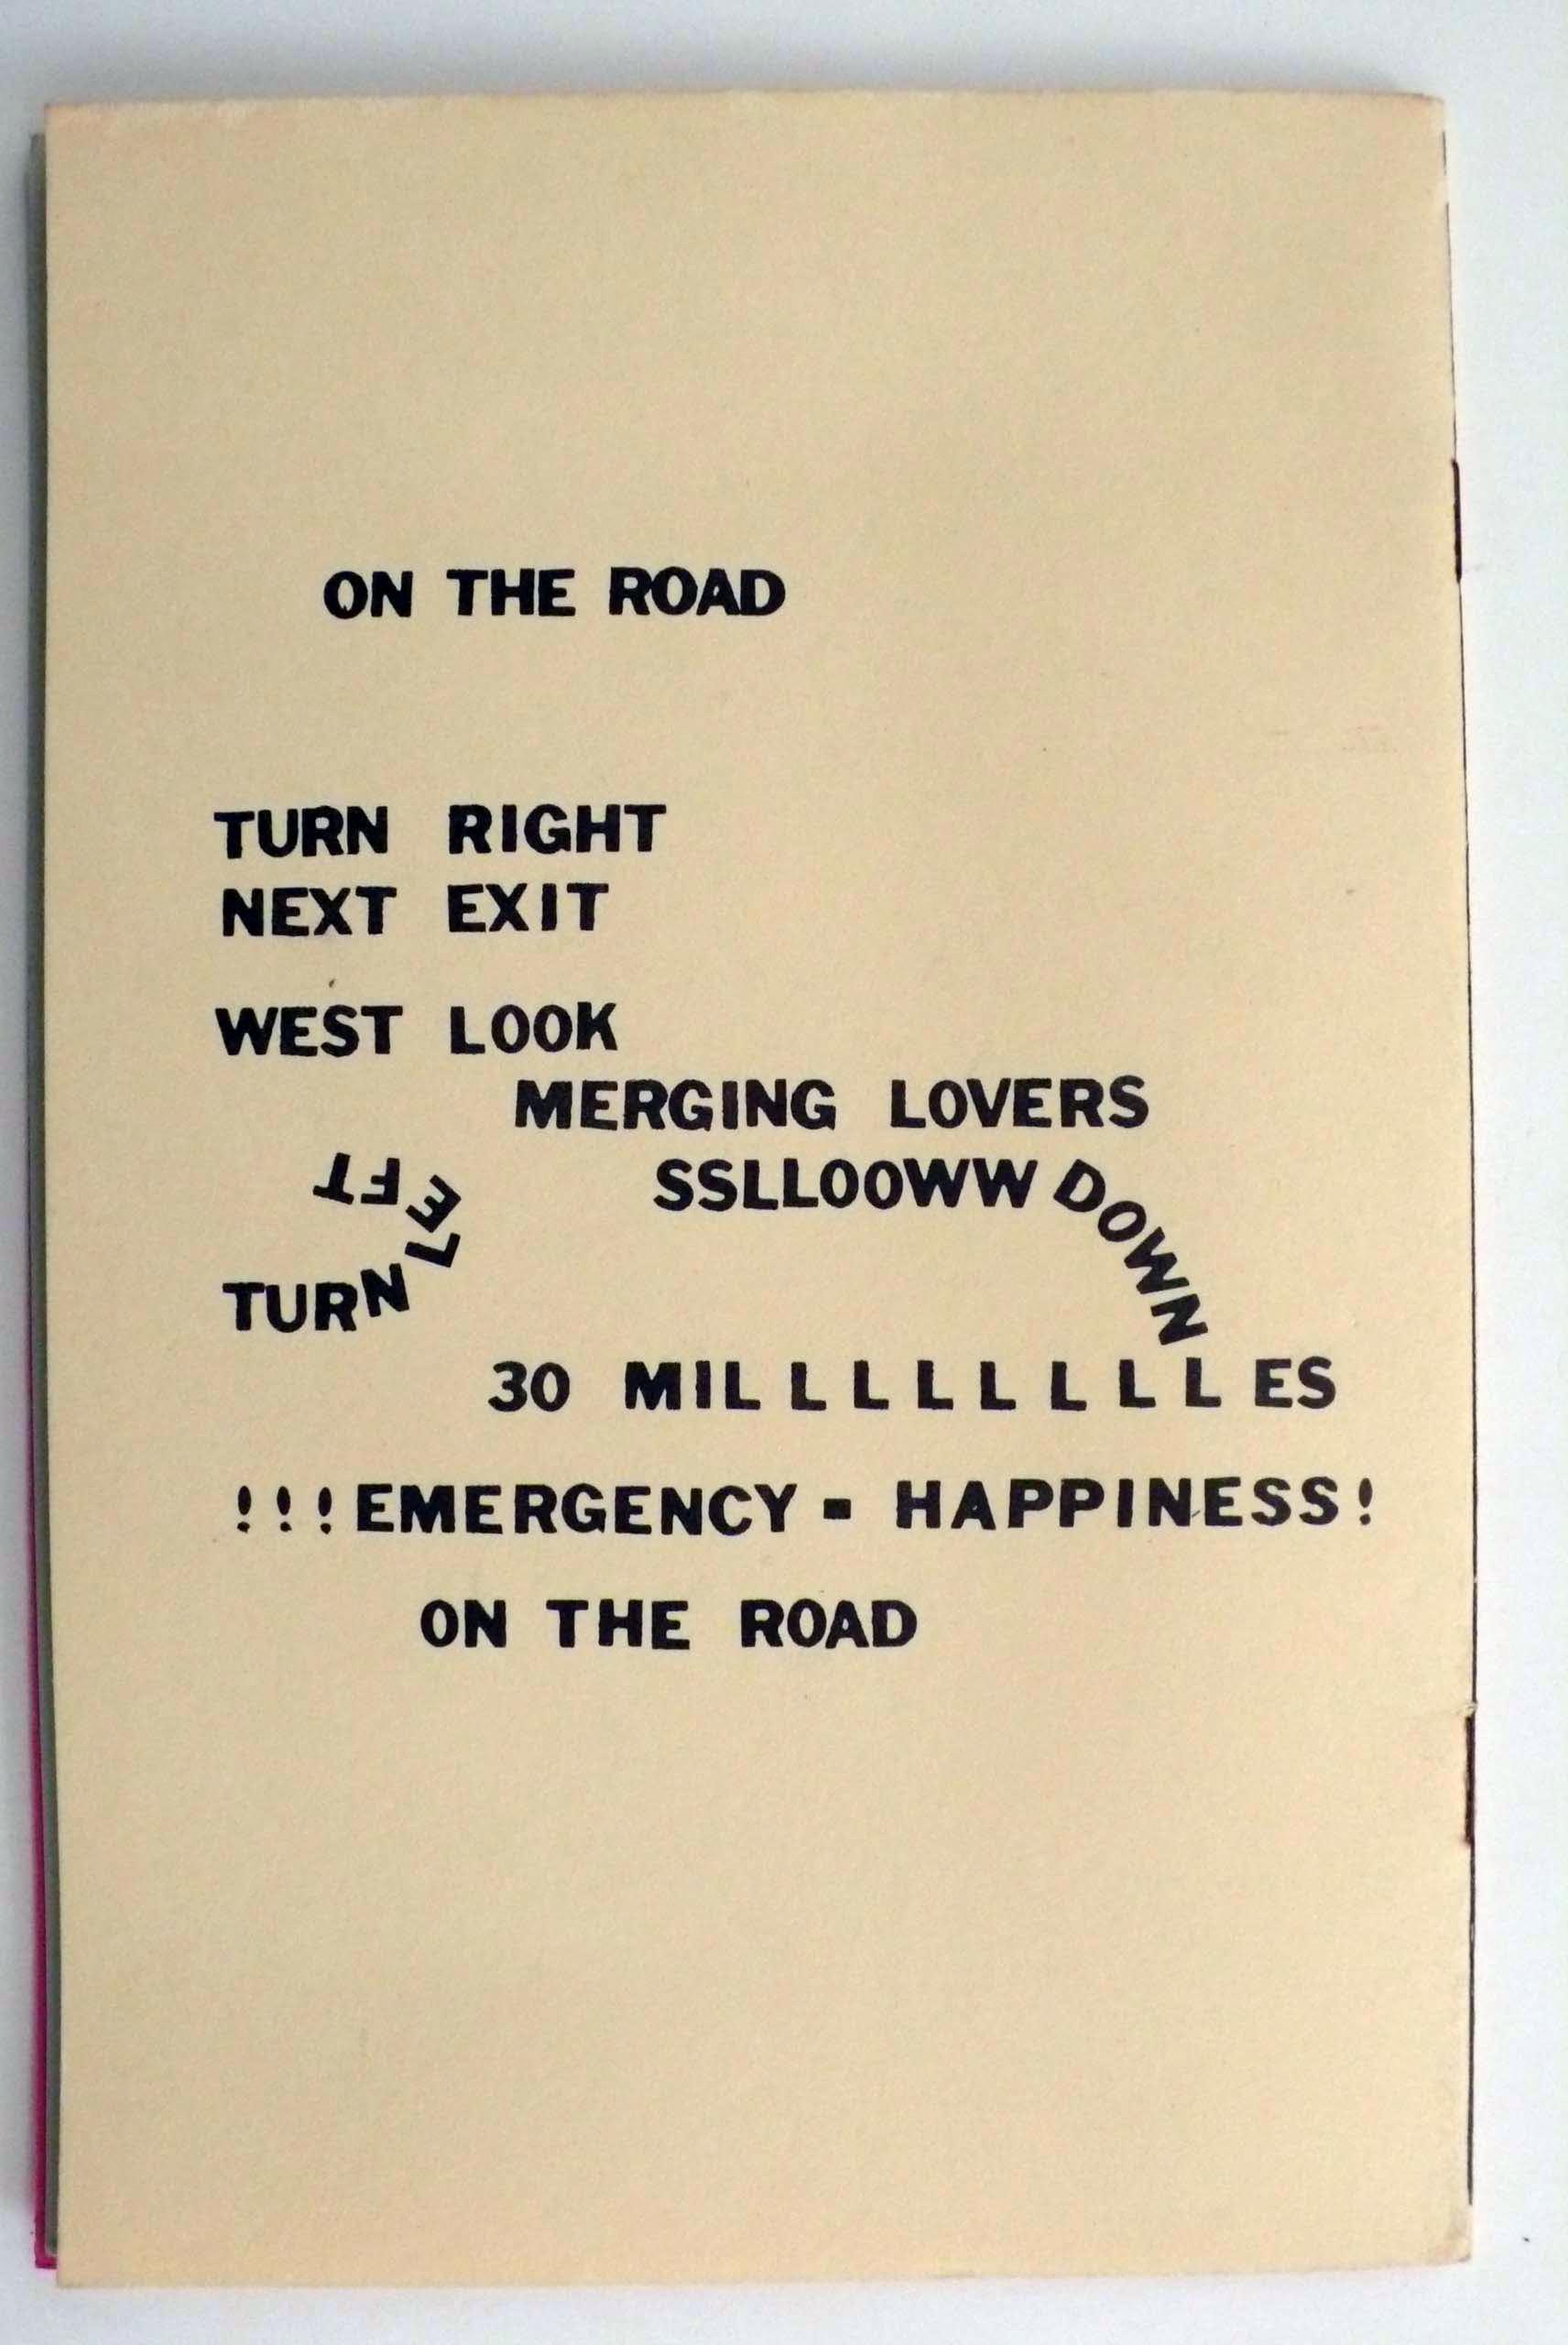 ON THE ROAD
TURN RIGHT
NEXT EXIT
WEST LOOK
MERGING LOVERS
SSLLOOWW DOWN
TURN LEFT
30 MILLLLLLLLES
!!!EMERGENCY - HAPPINESS!
ON THE ROAD